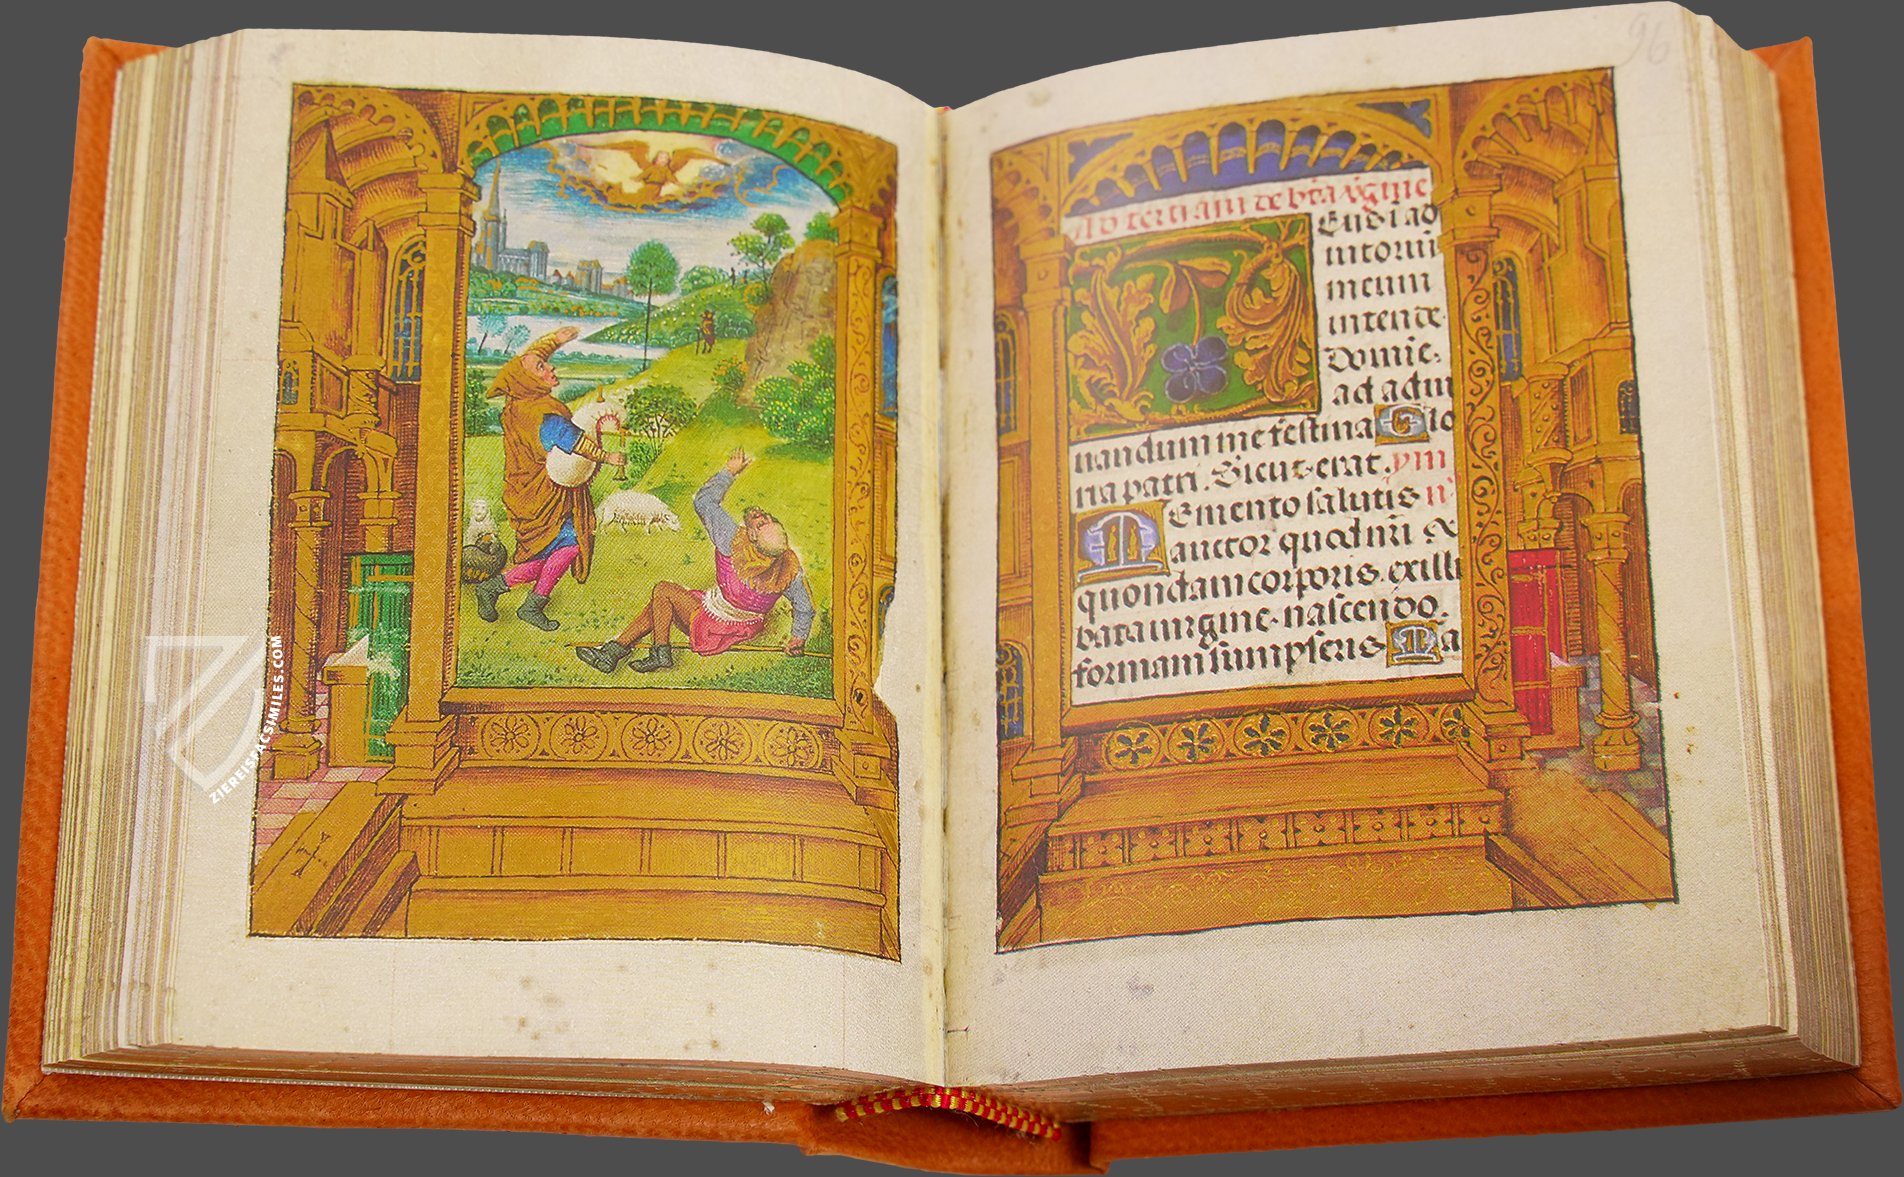 96
Ad tertiam de bta v̄gine
Eus i ad
iutoriū
meum
intende
Domie.
ad adiu
uandum me festina Glo
ria patri. Sicut erat. ym
Emento salutis n̄
auctor quod nr̄i &
quondam corporis. ex illi
bata uirgine. nascendo.
formam sumpseris Ma
ZIEREISFACSIMILES.COM